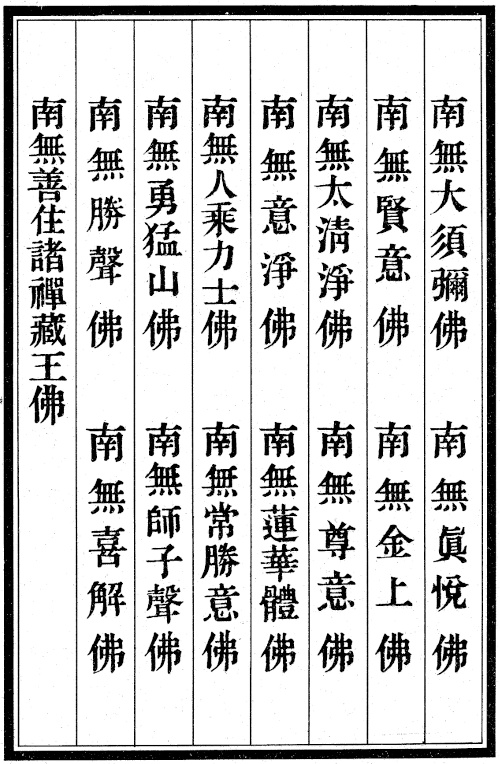 南無大須彌佛 南無眞悅佛
南無賢意佛 南無金上佛
南無太淸淨佛 南無尊意佛
南無意淨佛 南無蓮華體佛
南無人乘力士佛 南無常勝意佛
南無勇猛山佛 南無師子聲佛
南無勝聲佛 南無喜解佛
南無善住諸禪藏王佛